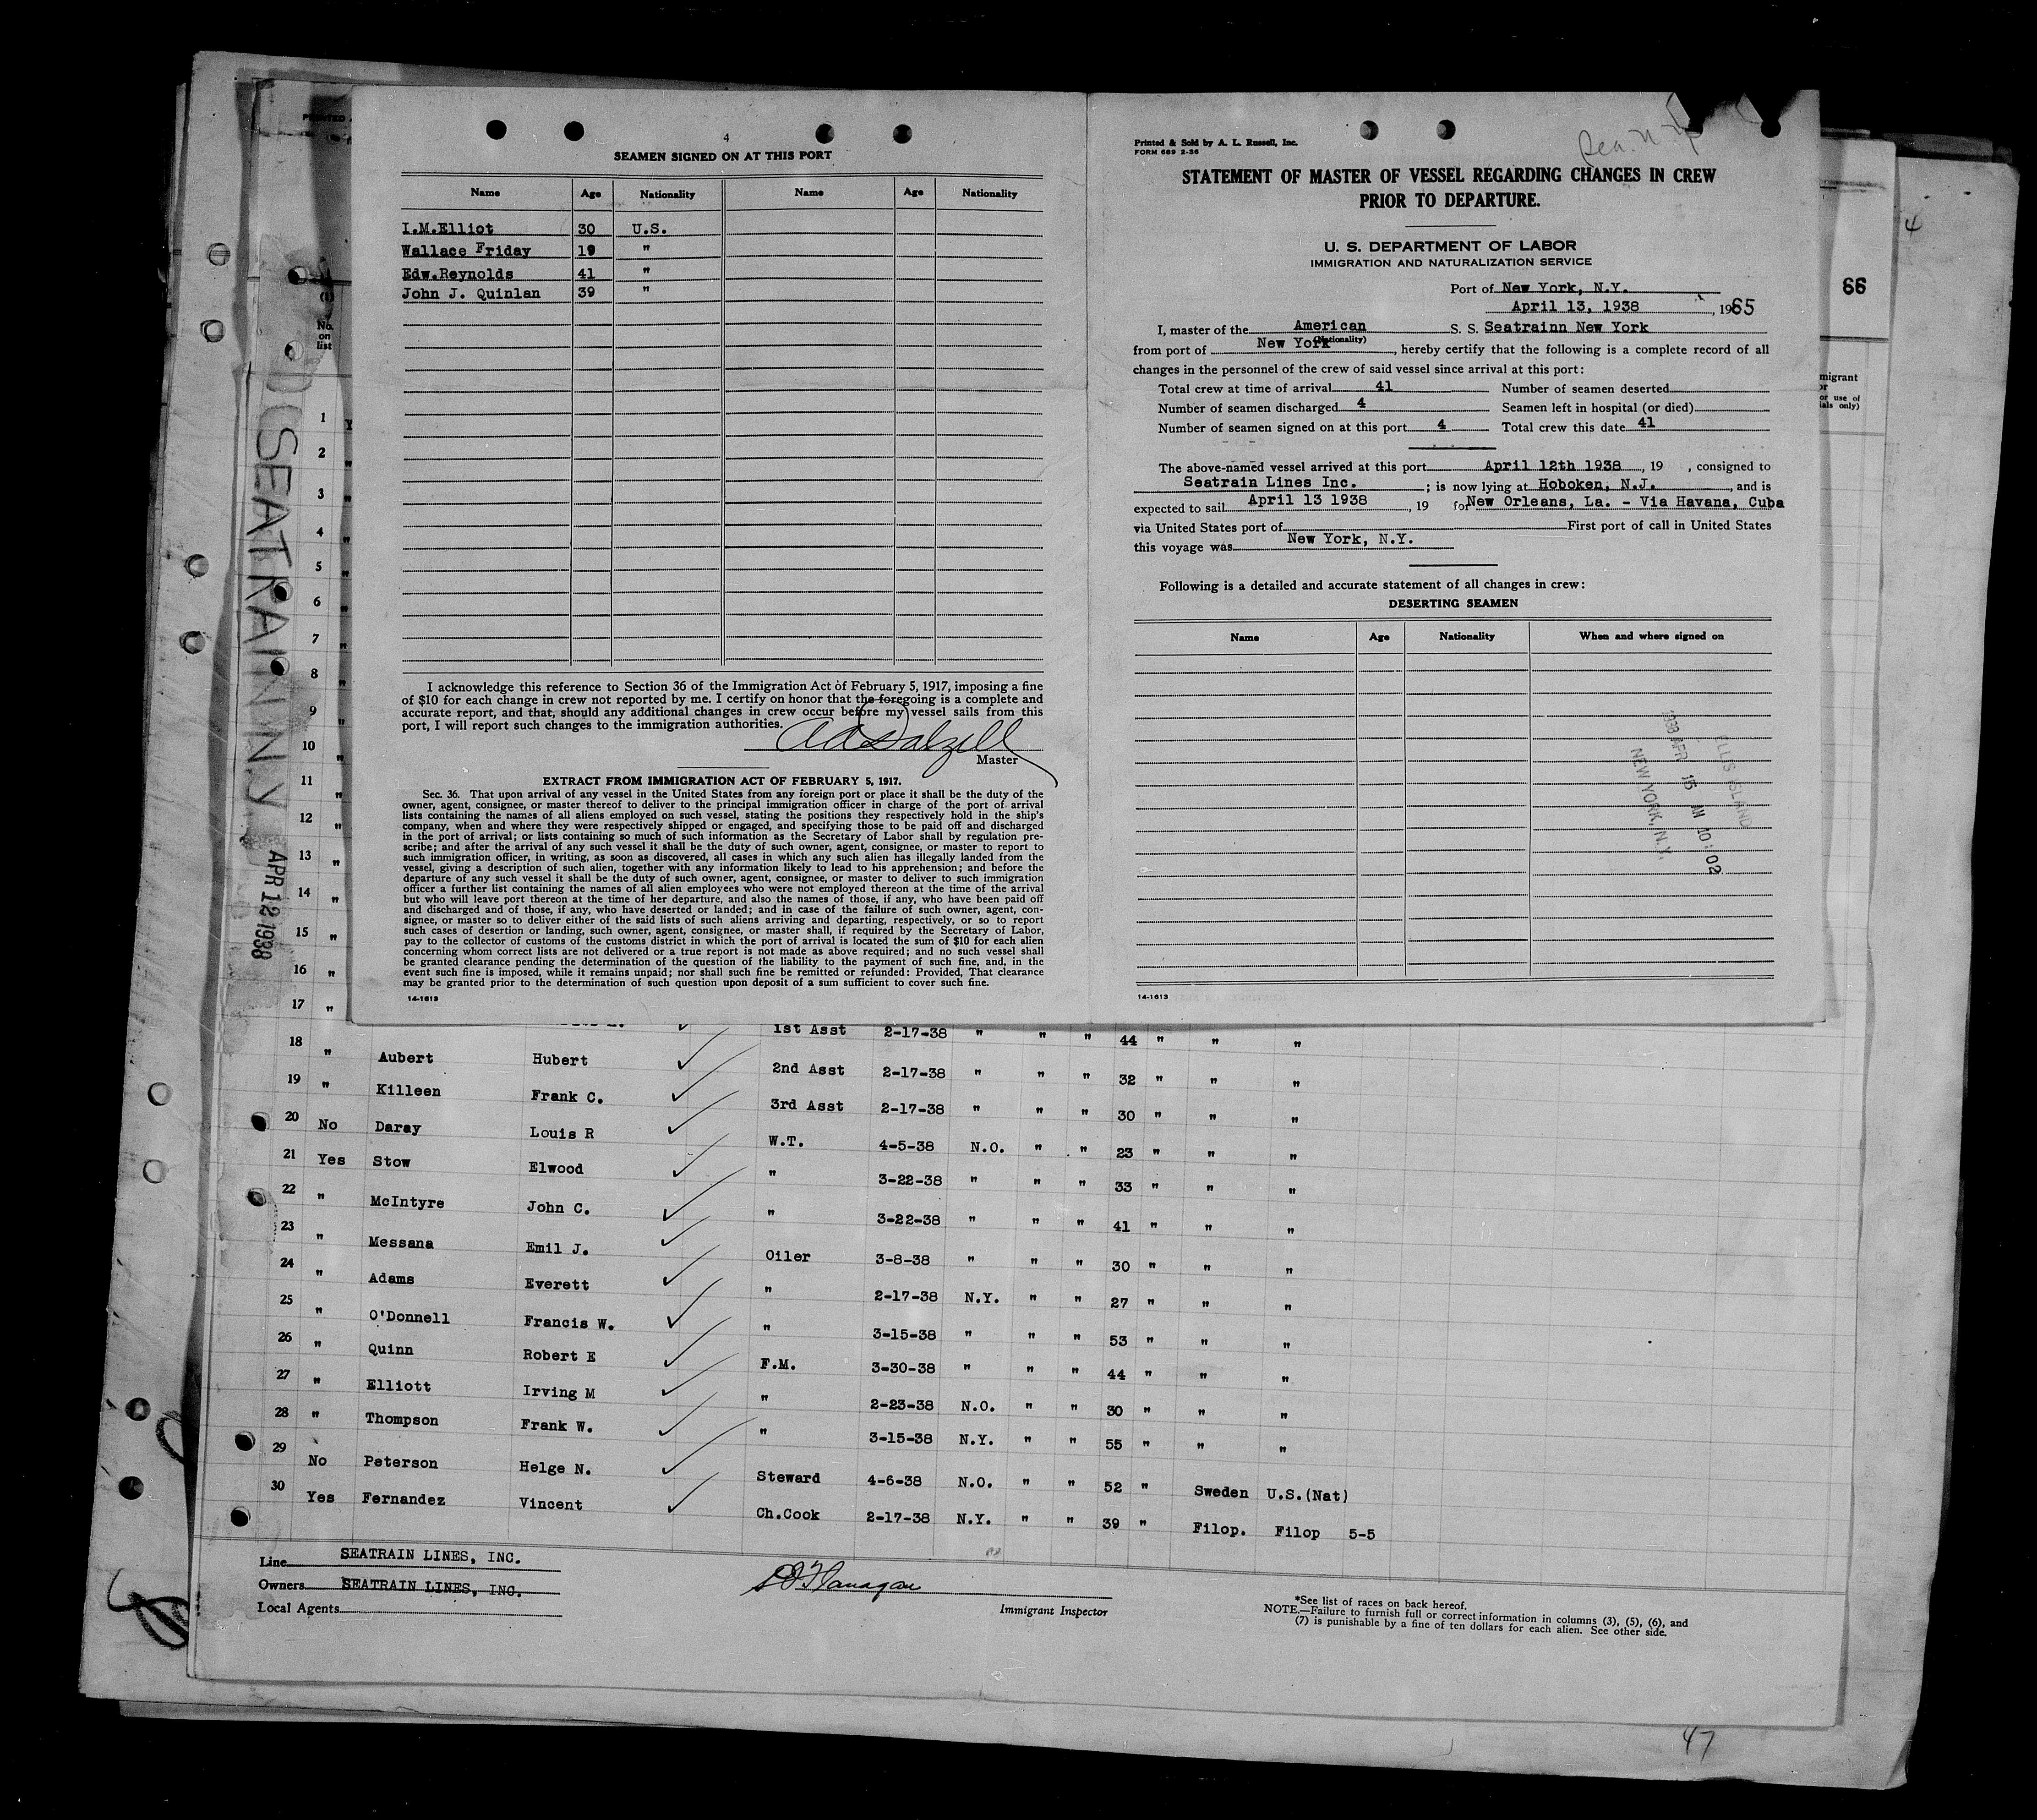 4
SEAMEN SIGNED ON AT THIS PORT
Name Age Nationality Name Age Nationality
I.M.Elliot 30 U.S.
Wallace Friday 19 "
Edw.Reynolds 41 "
John J. Quinlan 39 "
I acknowledge this reference to Section 36 of the Immigration Act of February 5, 1917, imposing a fine
of $10 for each change in crew not reported by me. I certify on honor that the foregoing is a complete and
accurate report, and that, should any additional changes in crew occur before my vessel sails from this
port, I will report such changes to the immigration authorities.
A A Dalzell
Master
EXTRACT FROM IMMIGRATION ACT OF FEBRUARY 5, 1917.
Sec. 36. That upon arrival of any vessel in the United States from any foreign port or place it shall be the duty of the
owner, agent, consignee, or master thereof to deliver to the principal immigration officer in charge of the port of arrival
lists containing the names of all aliens employed on such vessel, stating the positions they respectively hold in the ship's
company, when and where they were respectively shipped or engaged, and specifying those to be paid off and discharged
in the port of arrival; or lists containing so much of such information as the Secretary of Labor shall by regulation pre-
scribe; and after the arrival of any such vessel it shall be the duty of such owner, agent, consignee, or master to report to
such immigration officer, in writing, as soon as discovered, all cases in which any such alien has illegally landed from the
vessel, giving a description of such alien, together with any information likely to lead to his apprehension; and before the
departure of any such vessel it shall be the duty of such owner, agent, consignee, or master to deliver to such immigration
officer a further list containing the names of all alien employees who were not employed thereon at the time of the arrival
but who will leave port thereon at the time of her departure, and also the names of those, if any, who have been paid off
and discharged and of those, if any, who have deserted or landed; and in case of the failure of such owner, agent, con-
signee, or master so to deliver either of the said lists of such aliens arriving and departing, respectively, or so to report
such cases of desertion or landing, such owner, agent, consignee, or master shall, if required by the Secretary of Labor,
pay to the collector of customs of the customs district in which the port of arrival is located the sum of $10 for each alien
concerning whom correct lists are not delivered or a true report is not made as above required; and no such vessel shall
be granted clearance pending the determination of the question of the liability to the payment of such fine, and, in the
event such fine is imposed, while it remains unpaid; nor shall such fine be remitted or refunded: Provided, That clearance
may be granted prior to the determination of such question upon deposit of a sum sufficient to cover such fine.
14-1613
Printed & Sold by A. L. Russell, Inc.
FORM 689 2-36
STATEMENT OF MASTER OF VESSEL REGARDING CHANGES IN CREW
PRIOR TO DEPARTURE.
U. S. DEPARTMENT OF LABOR
IMMIGRATION AND NATURALIZATION SERVICE
Port of New York, N.Y.
April 13, 1938 , 1965
I, master of the American S. S. Seatrainn New York
(Nationality)
from port of New York, hereby certify that the following is a complete record of all
changes in the personnel of the crew of said vessel since arrival at this port:
Total crew at time of arrival 41 Number of seamen deserted
Number of seamen discharged 4 Seamen left in hospital (or died)
Number of seamen signed on at this port 4 Total crew this date 41
The above-named vessel arrived at this port April 12th 1938, 19 , consigned to
Seatrain Lines Inc. ; is now lying at Hoboken, N.J. , and is
expected to sail April 13 1938 , 19 for New Orleans, La. - Via Havana, Cuba
via United States port of First port of call in United States
this voyage was New York, N.Y.
Following is a detailed and accurate statement of all changes in crew:
DESERTING SEAMEN
Name Age Nationality When and where signed on
ELLIS ISLAND
1938 APR 15 AM 10:02
NEW YORK, N.Y.
14-1613
4
66
migrant
or
or use of
ials only)
PRINTED
(1)
No.
on
list
SEATRAIN N Y
APR 12 1938
1 Y
2 "
3 "
4 "
5 "
6 "
7 "
8 "
9 "
10 "
11 "
12 "
13 "
14 "
15 "
16 "
17 " 1st Asst 2-17-38 " " " 44 " " "
18 " Aubert Hubert 2nd Asst 2-17-38 " " " 32 " " "
19 " Killeen Frank C. 3rd Asst 2-17-38 " " " 30 " " "
20 No Daray Louis R W.T. 4-5-38 N.O. " " 23 " " "
21 Yes Stow Elwood " 3-22-38 " " " 33 " " "
22 " McIntyre John C. " 3-22-38 " " " 41 " " "
23 " Messana Emil J. Oiler 3-8-38 " " " 30 " " "
24 " Adams Everett " 2-17-38 N.Y. " " 27 " " "
25 " O'Donnell Francis W. " 3-15-38 " " " 53 " " "
26 " Quinn Robert E F.M. 3-30-38 " " " 44 " " "
27 " Elliott Irving M " 2-23-38 N.O. " " 30 " " "
28 " Thompson Frank W. " 3-15-38 N.Y. " " 55 " " "
29 No Peterson Helge N. Steward 4-6-38 N.O. " " 52 " Sweden U.S.(Nat)
30 Yes Fernandez Vincent Ch.Cook 2-17-38 N.Y. " " 39 " Filop. Filop 5-5
Line SEATRAIN LINES, INC.
Owners SEATRAIN LINES, INC.
Local Agents
Flanagan
Immigrant Inspector
*See list of races on back hereof.
NOTE.—Failure to furnish full or correct information in columns (3), (5), (6), and
(7) is punishable by a fine of ten dollars for each alien. See other side.
47